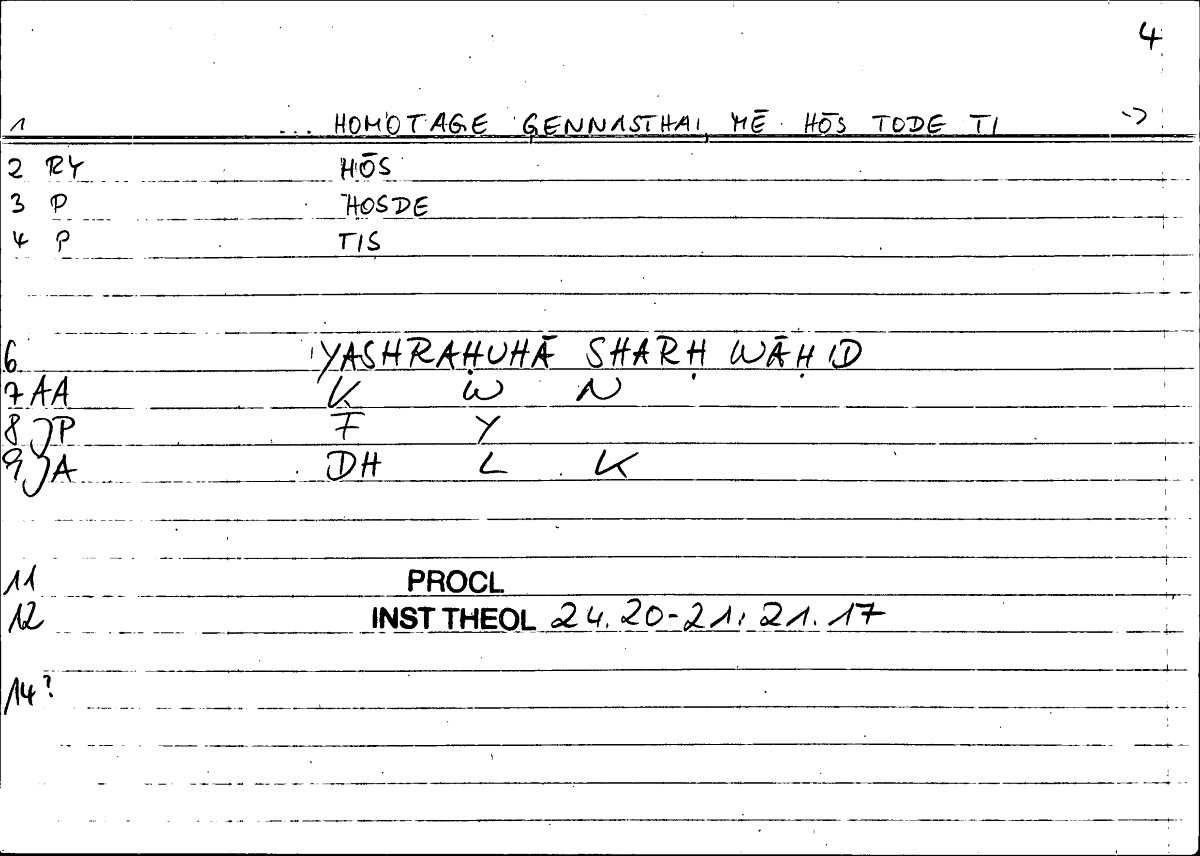 4
1 ... HOMOTAGE GENNASTHAI, MĒ HŌS TODE TI ->
2 RY HŌS
3 P HOSDE
4 P TIS
6 YASHRAḤUHĀ SHARḤ WĀḤID
7 AA K W N
8 JP F Y
9 JA DH L K
11 PROCL
12 INST THEOL 24.20-21; 21.17
14?